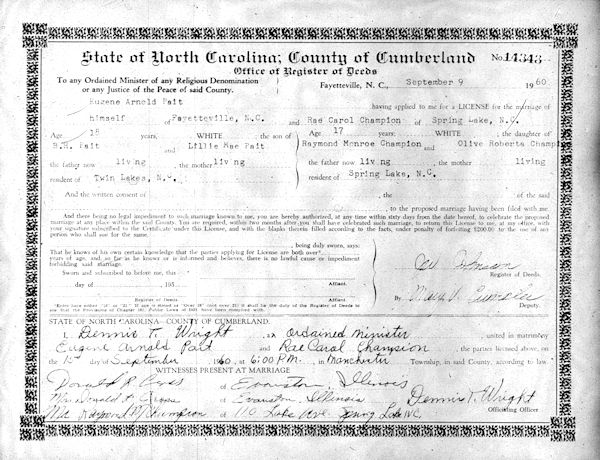 State of North Carolina; County of Cumberland No. 14343
Office of Register of Deeds
To any Ordained Minister of any Religious Denomination
or any Justice of the Peace of said County. Fayetteville, N. C., September 9 1960
Eugene Arnold Pait having applied to me for a LICENSE for the marriage of
himself of Fayetteville, N.C. and Rae Carol Champion of Spring Lake, N.C.
Age 18 years, WHITE the son of Age 17 years, WHITE, the daughter of
B.H. Pait and Lillie Mae Pait Raymond Monroe Champion and Olive Roberta Champi
the father now living, the mother living the father now living, the mother living
resident of Twin Lakes, N.C. resident of Spring Lake, N.C.
And the written consent of of the said
to the proposed marriage having been filed with me.
And there being no legal impediment to such marriage known to me, you are hereby authorized, at any time within sixty days from the date hereof, to celebrate the proposed
marriage at any place within the said County. You are required, within two months after you shall have celebrated such marriage, to return this License to me, at my office, with
your signature subscribed to the Certificate under this License, and with the blanks therein filled according to the facts, under penalty of forfeiting $200.00 to the use of any
person who shall sue for the same.
being duly sworn, says:
That he knows of his own certain knowledge that the parties applying for License are both over*
years of age, and so far as he knows or is informed and believes, there is no lawful cause or impediment
forbidding said marriage.
Sworn and subscribed to before me, this
Johnson
Register of Deeds.
day of 195 Affiant.
By
Deputy.
Register of Deeds Affiant.
*Enter here either "18" or "21". If age is stated as "Over 18" (not over 21) it shall be the duty of the Register of Deeds to
see that the Provisions of Chapter Public Laws of have been complied with.
STATE OF NORTH CAROLINA—COUNTY OF CUMBERLAND.
I, Dennis T. Wright, an ordained minister, united in matrimony
Eugene Arnold Pait and Rae Carol Champion, the parties licensed above, on
the day of September 1960, at 6:00 P.M. in Manchester Township, in said County, according to law.
WITNESSES PRESENT AT MARRIAGE
Donald R. of Evanston, Illinois
Mrs. Donald of Evanston, Illinois Dennis T. Wright
Raymond M Champion of Lake Ave. Spring Lake NC. Officiating Officer